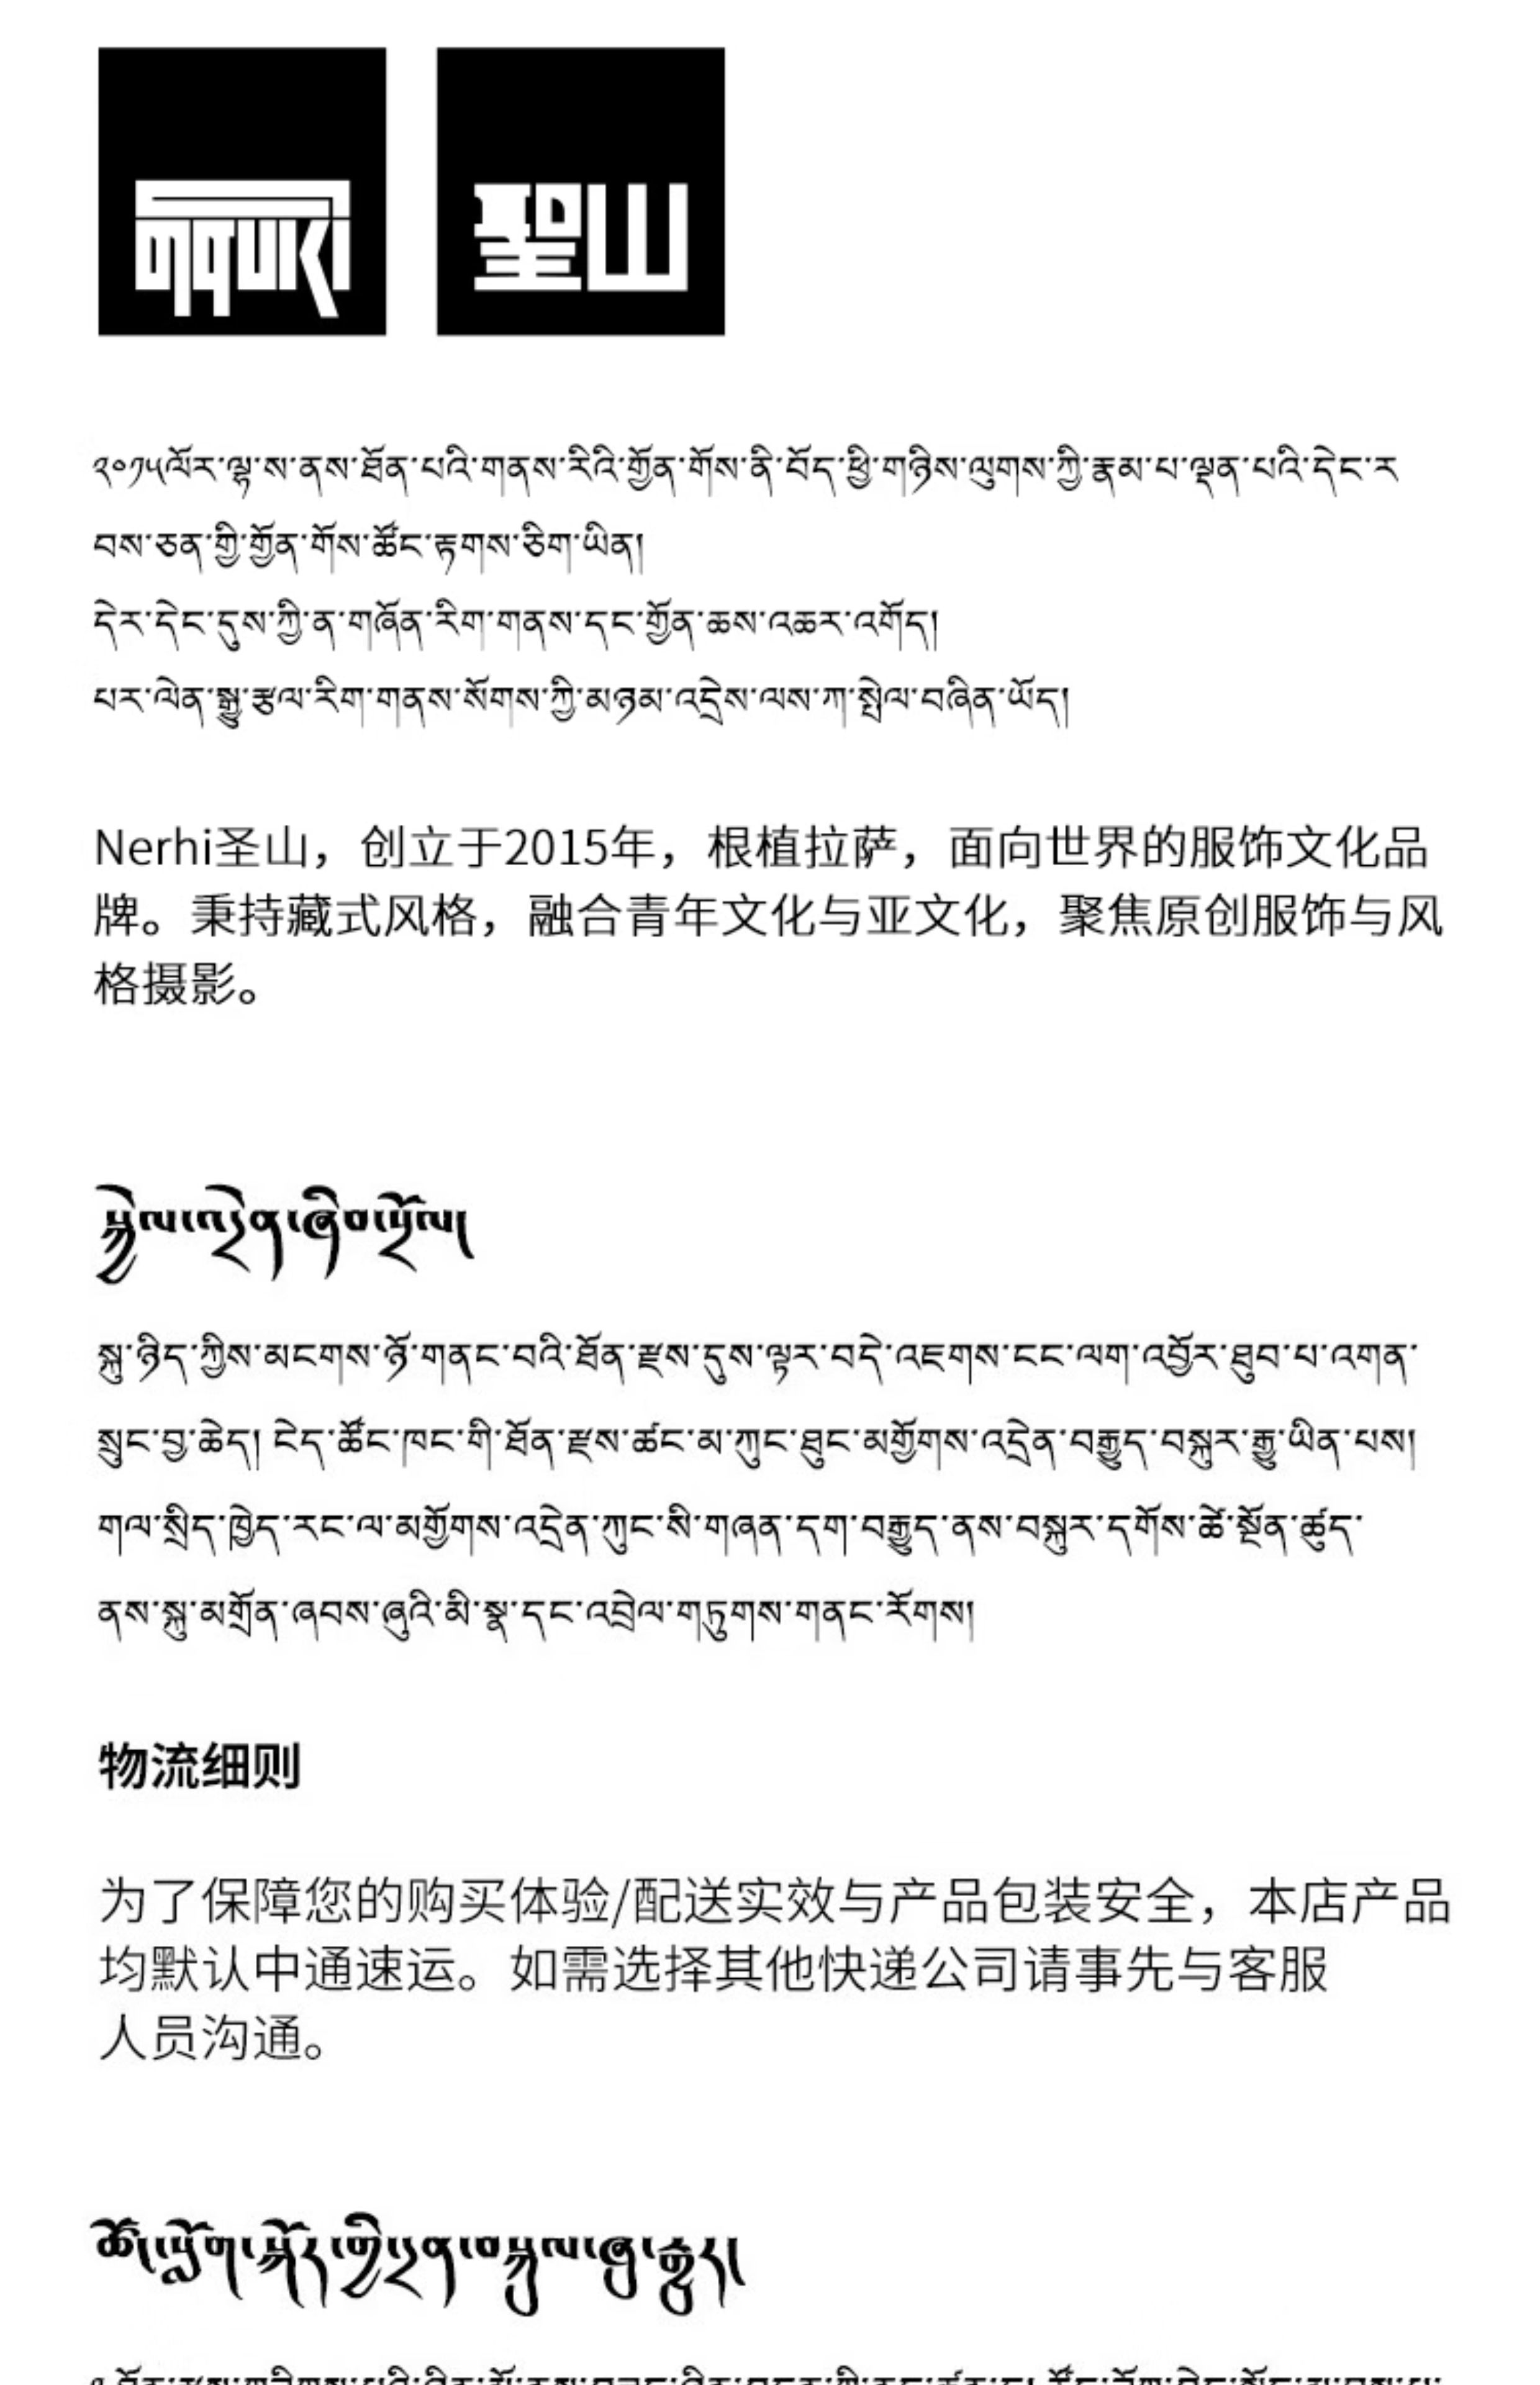 聖山
༢༠༡༥ལོར་ལྷ་ས་ནས་ཐོན་པའི་གནས་རིའི་གྱོན་གོས་ནི་བོད་ཕྱི་གཉིས་ལུགས་ཀྱི་རྣམ་པ་ལྡན་པའི་དེང་ར
བས་ཅན་གྱི་གྱོན་གོས་ཚོང་རྟགས་ཅིག་ཡིན།
དེར་དེང་དུས་ཀྱི་ན་གཞོན་རིག་གནས་དང་གྱོན་ཆས་འཆར་འགོད།
པར་ལེན་སྒྱུ་རྩལ་རིག་གནས་སོགས་ཀྱི་མཉམ་འདྲེས་ལས་ཀ་སྤེལ་བཞིན་ཡོད།
Nerhi圣山，创立于2015年，根植拉萨，面向世界的服饰文化品
牌。秉持藏式风格，融合青年文化与亚文化，聚焦原创服饰与风
格摄影。
སྐུ་ཉིད་ཀྱིས་མངགས་ཉོ་གནང་བའི་ཐོན་རྫས་དུས་ལྟར་བདེ་འཇགས་ངང་ལག་འབྱོར་ཐུབ་པ་འགན་
སྲུང་བྱ་ཆེད། ངེད་ཚོང་ཁང་གི་ཐོན་རྫས་ཚང་མ་ཀྲུང་ཐུང་མགྱོགས་འདྲེན་བརྒྱུད་བསྐུར་རྒྱུ་ཡིན་པས།
གལ་སྲིད་ཁྱེད་རང་ལ་མགྱོགས་འདྲེན་ཀུང་སི་གཞན་དག་བརྒྱུད་ནས་བསྐུར་དགོས་ཚེ་སྔོན་ཚུད་
ནས་སྐུ་མགྲོན་ཞབས་ཞུའི་མི་སྣ་དང་འབྲེལ་གཏུགས་གནང་རོགས།
物流细则
为了保障您的购买体验/配送实效与产品包装安全，本店产品
均默认中通速运。如需选择其他快递公司请事先与客服
人员沟通。